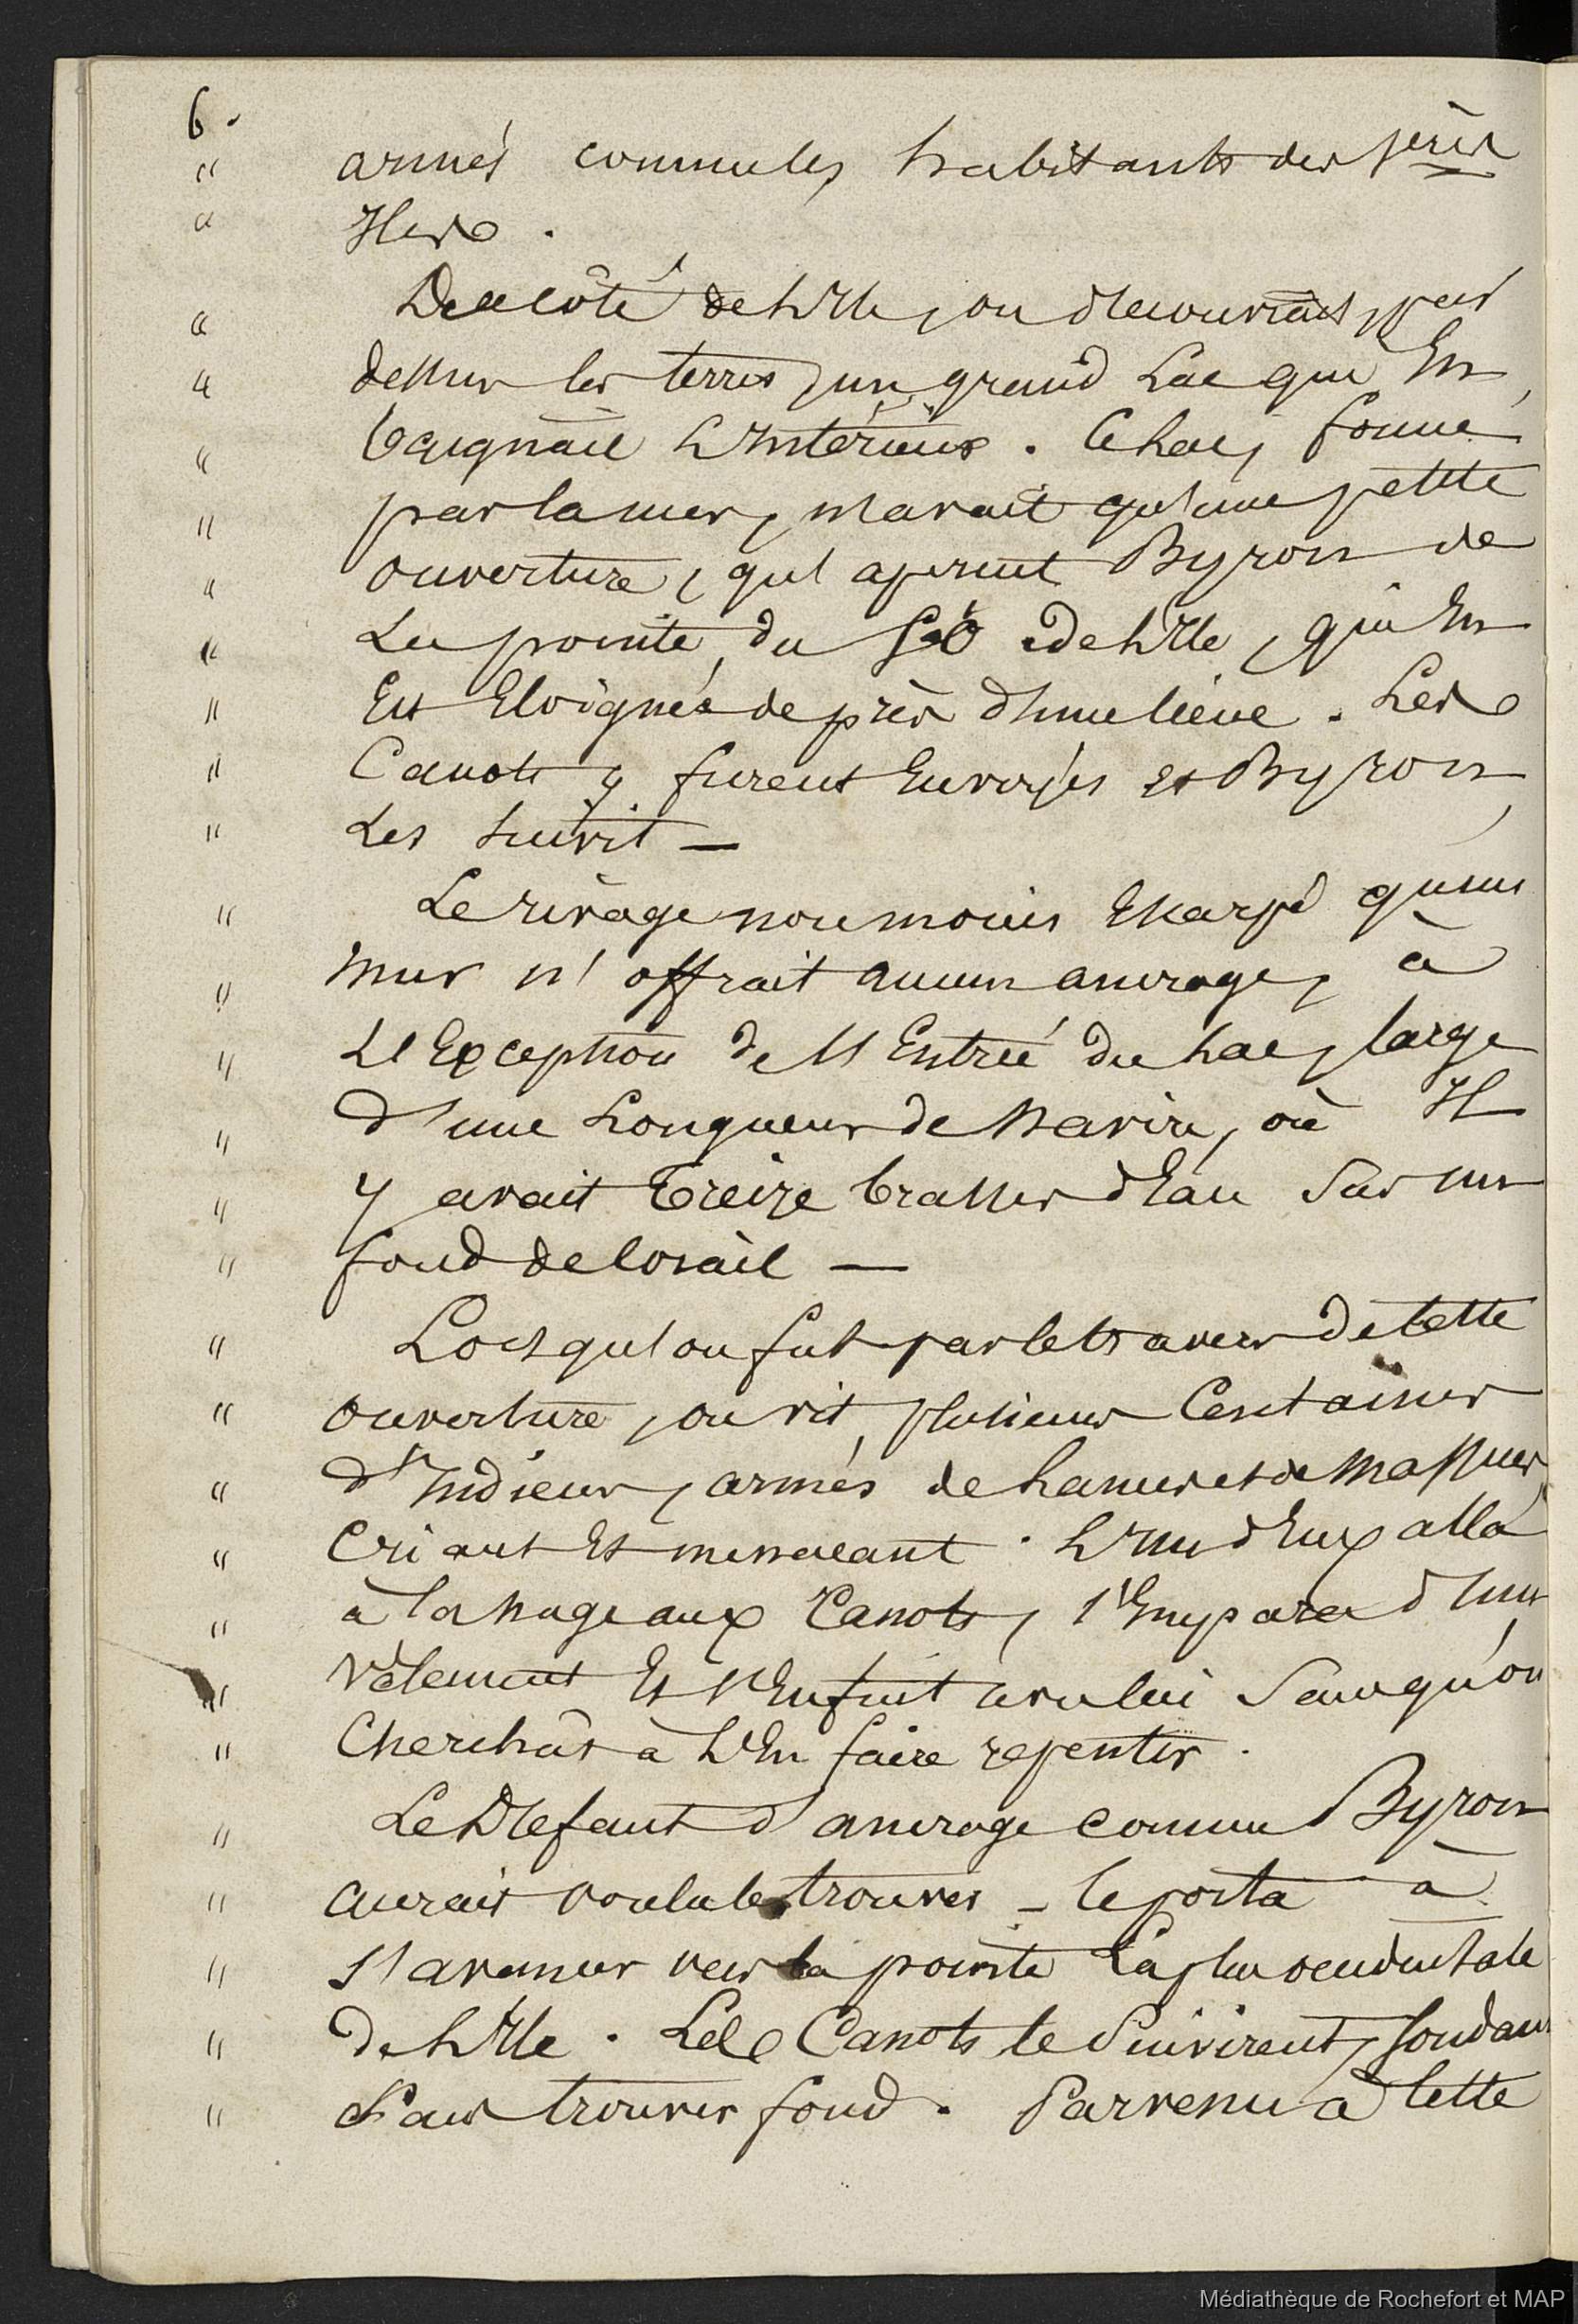 6.
" armés comme les habitants des 1ères
" Iles.
" De ce côté de l'Ile, on découvrait, par
" dessus les terres, un grand Lac qui En
" baignait L'Intérieur. Ce Lac, formé
" par la mer, n'avait qu'une petite
" ouverture, qu'aperçut Byron de
" La pointe du S.O de L'Ile, qui En
" Est Eloignée de près d'une lieue. Les
" Canots y furent Envoyés et Byron
" Les suivit —
" Le rivage non moins Escarpé qu'un
" mur n'offrait aucun ancrage, à
" L'Exception de l'Entrée du Lac, large
" d'une Longueur de Navire, où Il
" y avait treize brasses d'Eau sur un
" fond de Corail —
" Lorsqu'on fut par le travers de Cette
" ouverture, on vit plusieurs Centaines
" d'Indiens, armés de Lances et de Massues
" Criant Et menaçant. L'un d'Eux alla
" à la nage aux Canots, s'Empara d'un
" vêtement Et s'Enfuit avec lui sans qu'on
" Cherchât à L'En faire repentir.
" Le Défaut d'ancrage comme Byron
" aurait voulu le trouver – le porta à
" s'avancer vers la pointe La plus occidentale
" de L'Ile. Les Canots le Suivirent, sondant
" Sans trouver fond. Parvenu à Cette
Médiathèque de Rochefort et MAP